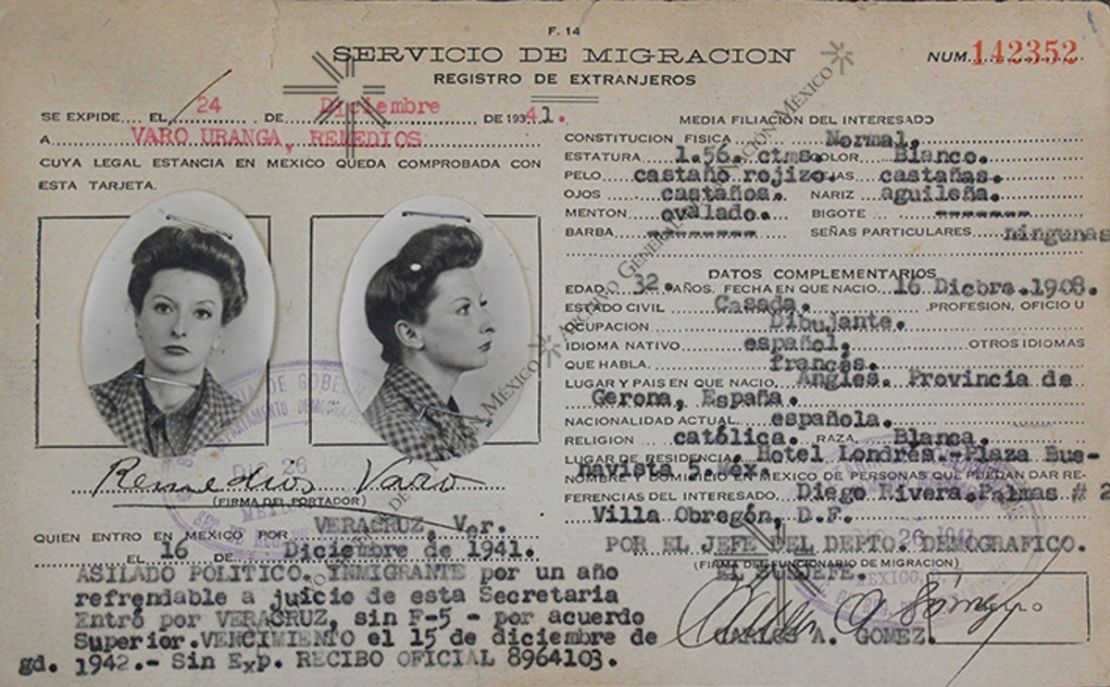 F. 14
SERVICIO DE MIGRACION
REGISTRO DE EXTRANJEROS
NUM. 142352
SE EXPIDE EL 24 DE Diciembre DE 1941.
A VARO URANGA, REMEDIOS
CUYA LEGAL ESTANCIA EN MEXICO QUEDA COMPROBADA CON
ESTA TARJETA.
Remedios Varo
(FIRMA DEL PORTADOR)
QUIEN ENTRO EN MEXICO POR VERACRUZ, Ver.
EL 16 DE Diciembre de 1941.
ASILADO POLITICO. INMIGRANTE por un año
refrendable a juicio de esta Secretaria
Entró por VERACRUZ, sin F-5 - por acuerdo
Superior.VENCIMIENTO el 15 de diciembre de
gd. 1942.- Sin Exp. RECIBO OFICIAL 8964103.
MEDIA FILIACION DEL INTERESADO
CONSTITUCION FISICA Normal.
ESTATURA 1.56. ctms. COLOR Blanco.
PELO castaño rojizo. CEJAS castañas.
OJOS castaños. NARIZ aguileña.
MENTON ovalado. BIGOTE --------
BARBA --------- SEÑAS PARTICULARES ningunas
DATOS COMPLEMENTARIOS
EDAD 32. AÑOS. FECHA EN QUE NACIO. 16 Dicbre. 1908.
ESTADO CIVIL Casada. PROFESION, OFICIO U
OCUPACION Dibujante.
IDIOMA NATIVO español. OTROS IDIOMAS
QUE HABLA. francés.
LUGAR Y PAIS EN QUE NACIO. Anglés. Provincia de
Gerona, España.
NACIONALIDAD ACTUAL española.
RELIGION católica. RAZA. Blanca.
LUGAR DE RESIDENCIA. Hotel Londres.-Plaza Bue-
navista 5. Méx.
NOMBRE Y DOMICILIO EN MEXICO DE PERSONAS QUE PUEDAN DAR RE-
FERENCIAS DEL INTERESADO. Diego Rivera. Palmas # 2
Villa Obregón, D.F.
POR EL JEFE DEL DEPTO. DEMOGRAFICO.
(FIRMA DEL FUNCIONARIO DE MIGRACION)
EL SUBJEFE.
CARLOS A. GOMEZ.
DIC 26
ARCHIVO GENERAL DE LA NACIÓN MÉXICO